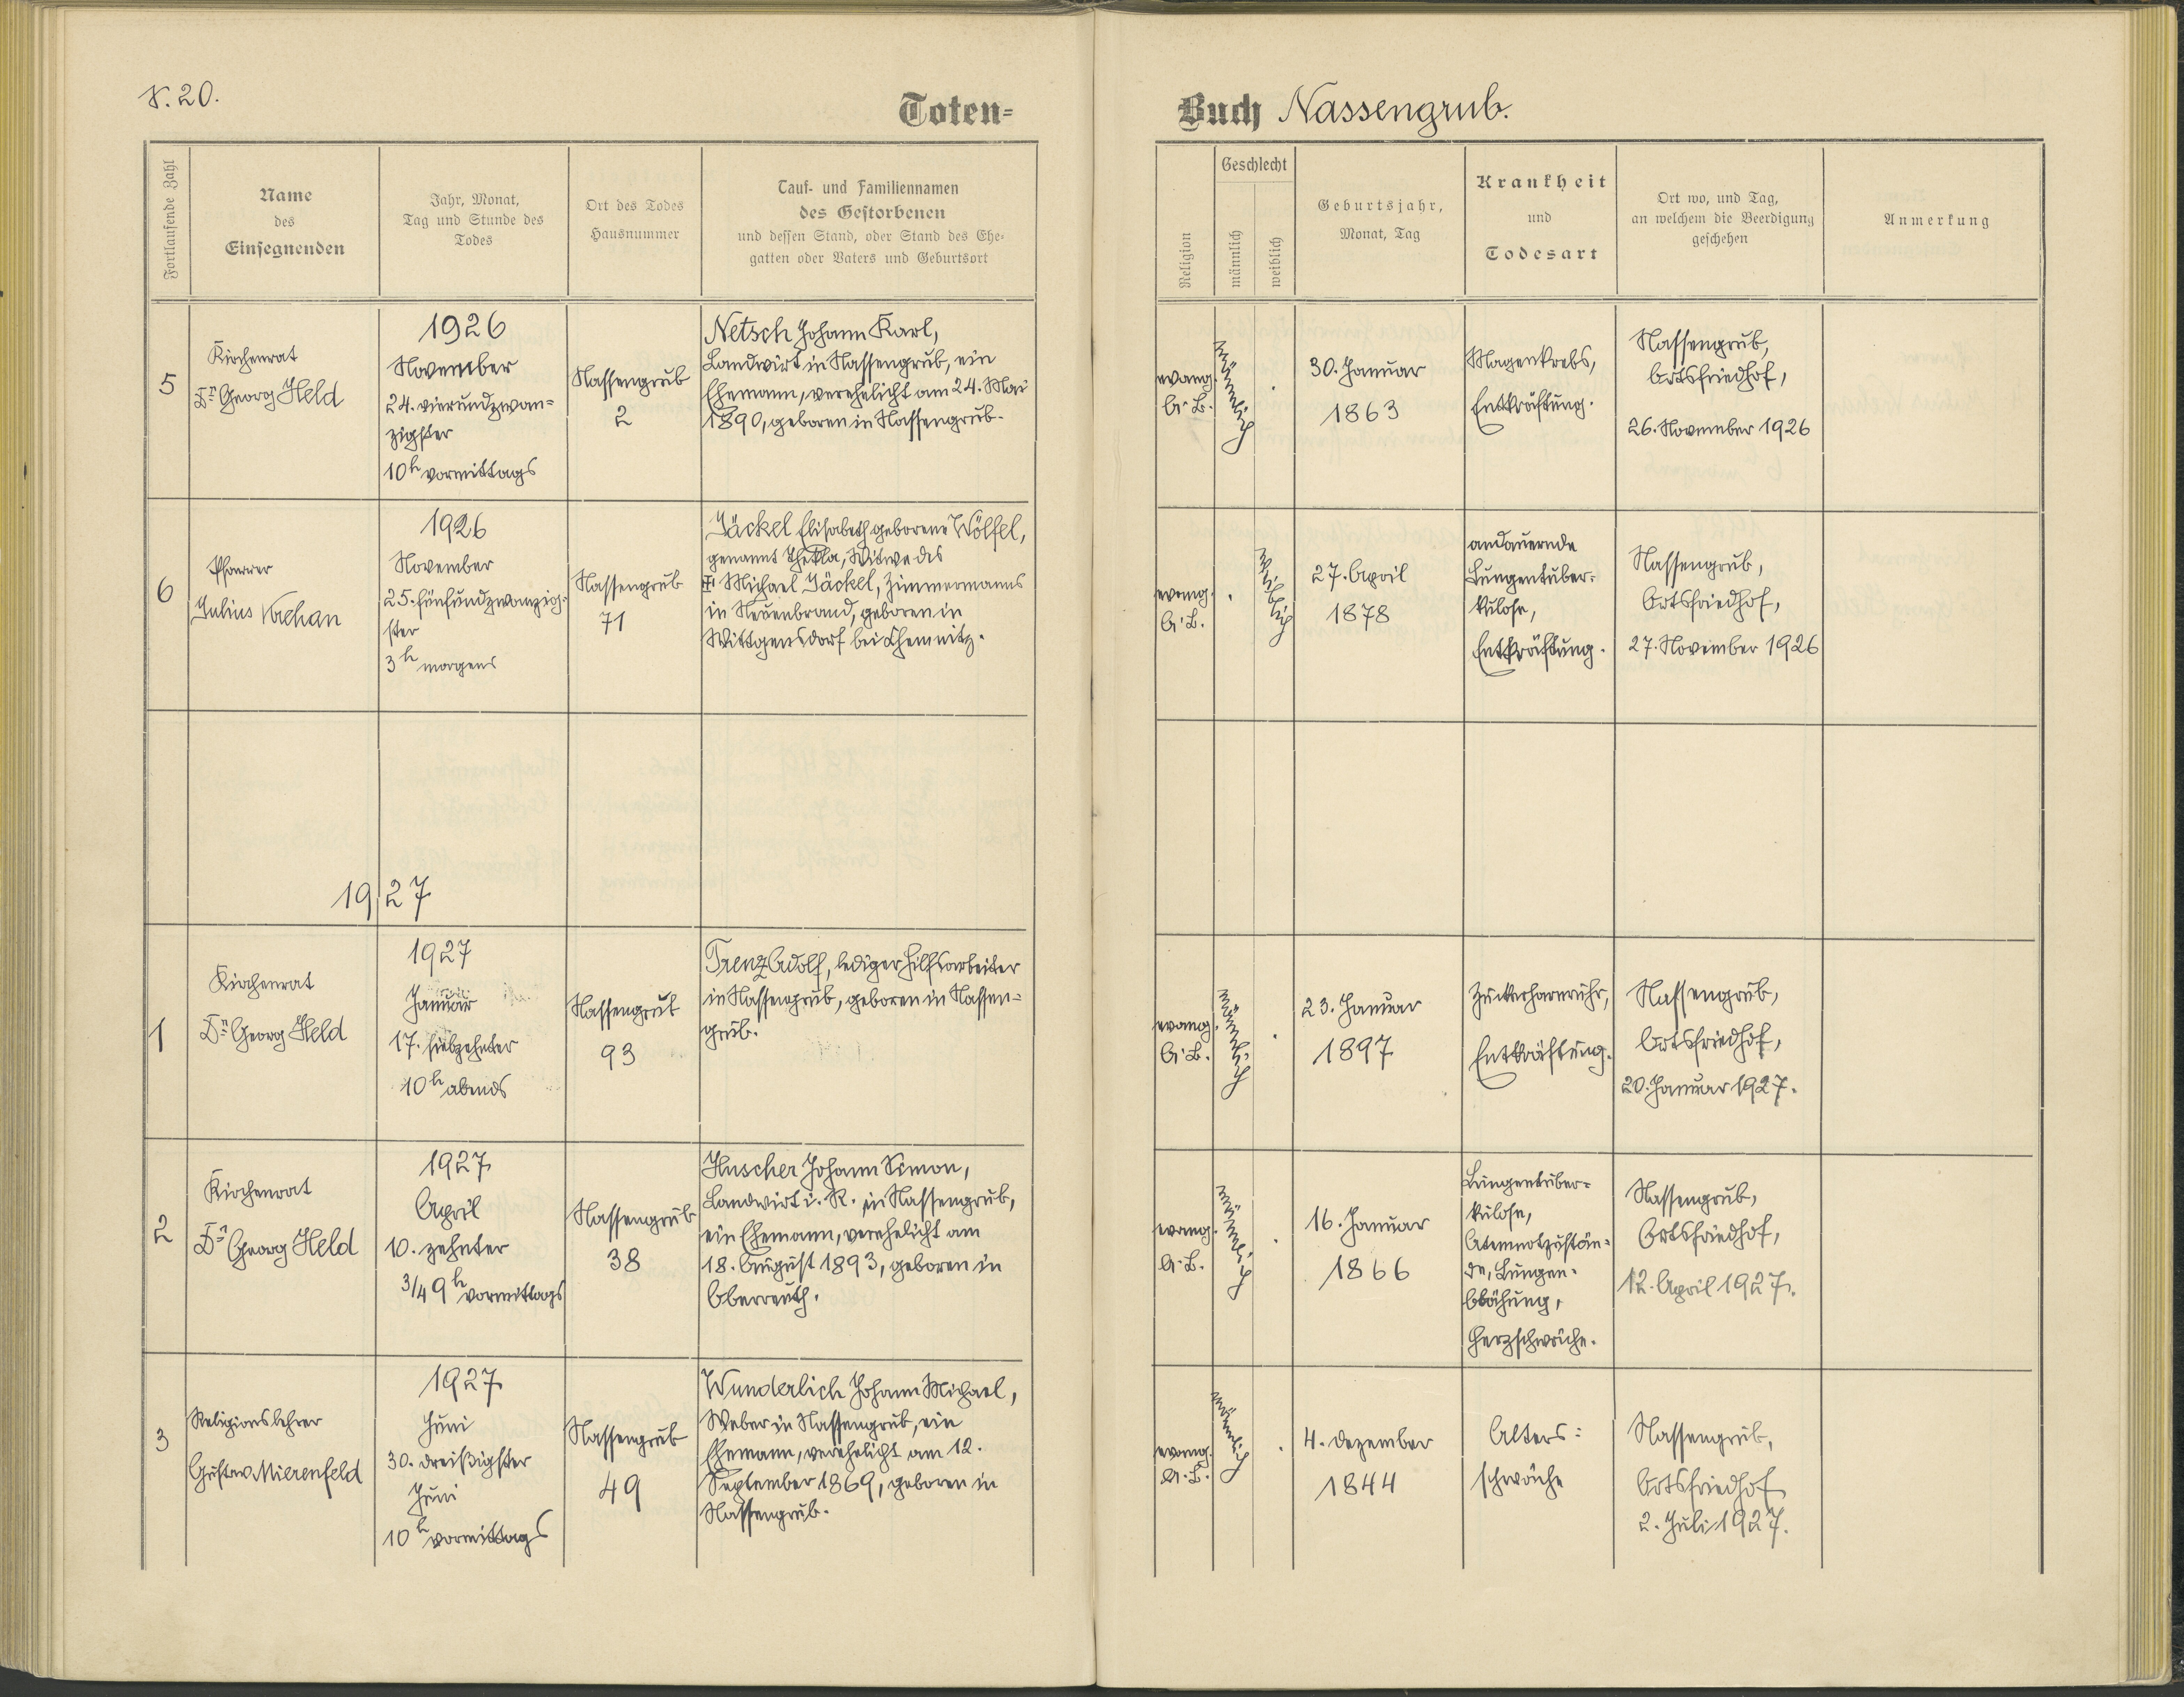 S. 20.
Toten=
Fortlaufende Zahl
Name
des
Einsegnenden
Jahr, Monat,
Tag und Stunde des
Todes
Ort des Todes
Hausnummer
Tauf- und Familiennamen
des Gestorbenen
und dessen Stand, oder Stand des Ehe-
gatten oder Vaters und Geburtsort
5
Kirchenrat
Dr. Georg Held
1926
November
24. vierundzwan=
zigster
10h vormittags
Nassengrub
2
Netsch Johann Karl,
Landwirt in Nassengrub, ein
Ehemann, verehelicht am 24. Mai
1890, geboren in Nassengrub.
6
Pfarrer
Julius
1926
November
25. fünfundzwanzig-
ster
3h morgens
Nassengrub
71
Jäckel Elisabeth geborene Wölfel,
genannt Thekla, Witwe des
Michael Jäckel, Zimmermanns
in Neuenbrand, geboren in
Wittgensdorf bei Chemnitz.
1927
1
Kirchenrat
Dr. Georg Held
1927
Januar
17. siebzehnter
10h abends
Nassengrub
93
Trenz Adolf, lediger Hilfsarbeiter
in Nassengrub, geboren in Nassen=
grub.
2
Kirchenrat
Dr. Georg Held
1927
April
10. zehnter
3/4 9h vormittags
Nassengrub
38
Huscher Johann Simon,
Landwirt i. R. in Nassengrub,
ein Ehemann, verehelicht am
18. August 1893, geboren in
Oberreuth.
3
Religionslehrer
Gustav Mierenfeld
1927
Juni
30. dreißigster
Juni
10h vormittags
Nassengrub
49
Wunderlich Johann Michael,
Weber in Nassengrub, ein
Ehemann, verehelicht am 12.
September 1869, geboren in
Nassengrub.
Buch Nassengrub.
Religion
Geschlecht
männlich
weiblich
Geburtsjahr,
Monat, Tag
Krankheit
und
Todesart
Ort wo, und Tag,
an welchem die Beerdigung
geschehen
Anmerkung
evang.
A. B.
männlich
30. Januar
1863
Magenkrebs,
Entkräftung.
Nassengrub,
Ortsfriedhof,
26. November 1926
evang.
A. B.
weiblich
27. April
1878
andauernde
Lungentuber-
kulose,
Entkräftung.
Nassengrub,
Ortsfriedhof,
27. November 1926
evang.
A. B.
männlich
23. Januar
1897
Zuckerharnruhr,
Entkräftung.
Nassengrub,
Ortsfriedhof,
20. Januar 1927.
evang.
A. B.
männlich
16. Januar
1866
Lungentuber=
kulose,
Atemnotzustän=
de, Lungen-
blähung,
Herzschwäche.
Nassengrub,
Ortsfriedhof,
12. April 1927.
evang.
A. B.
männlich
4. Dezember
1844
Alters:
schwäche
Nassengrub,
Ortsfriedhof
2. Juli 1927.